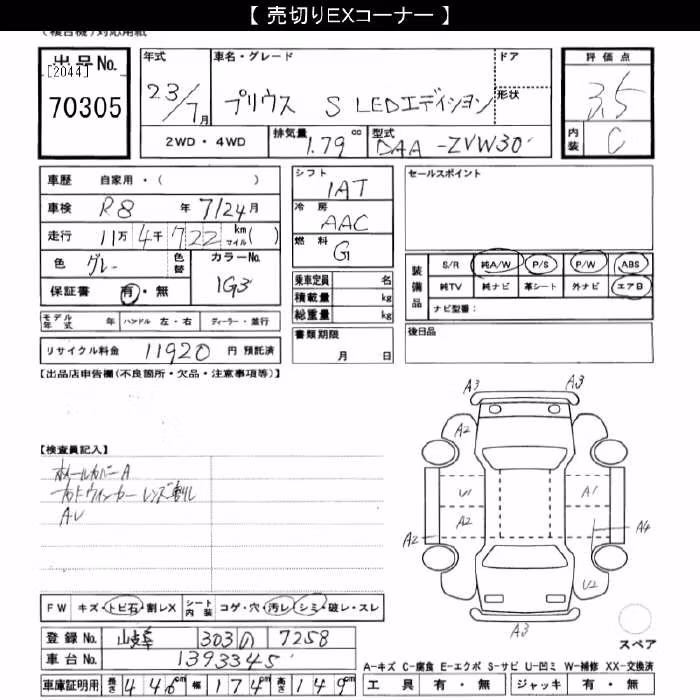 【 売切りEXコーナー 】
出品No.
[2044]
70305
年式
23/7月
車名・グレード
プリウス S LEDエディション
ドア
形状
2WD・4WD
排気量
1.79 cc
型式
DAA-ZVW30
評価点
3.5
内装
C
車歴 自家用・( )
車検 R8年 7/24月
走行 11万4千722 km マイル( )
色 グレー
色替
カラーNo.
1G3
保証書 有・無
モデル年式 年 ハンドル 左・右 ディーラー・並行
リサイクル料金 11920 円 預託済
シフト
1AT
冷房
AAC
燃料
G
乗車定員 名
積載量 kg
総重量 kg
書類期限
月 日
セールスポイント
装備品
S/R 純A/W P/S P/W ABS
純TV 純ナビ 革シート 外ナビ エアB
ナビ型番:
後日品
【出品店申告欄(不良箇所・欠品・注意事項等)】
【検査員記入】
ホイールカバーA
右ドウィンカーレンズ割れ
A・U
A3 A3
A2
U1 A1
A2
A2 A4
U2
A3
スペア
FW キズ・トビ石・割レX シート内装 コゲ・穴・汚レ・シミ・破レ・スレ
登録No. 303 の 7258
車台No. 1393345
車庫証明用 長さ 446cm 幅 174cm 高さ 149cm
A-キズ C-腐食 E-エクボ S-サビ U-凹ミ W-補修 XX-交換済
工具 有・無 ジャッキ 有・無